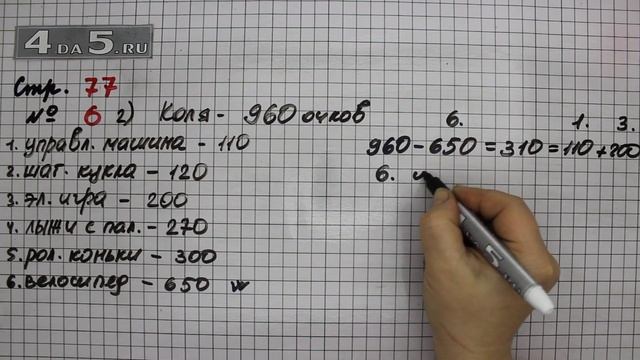 4 DA 5.RU
Стр. 77
№ 6 2) Коля - 960 очков
1. управл. машина - 110
2. шаг. кукла - 120
3. эл. игра - 200
4. лыжи с пал. - 270
5. рол. коньки - 300
6. велосипед - 650
6. 1. 3.
960 - 650 = 310 = 110 + 200
6. и